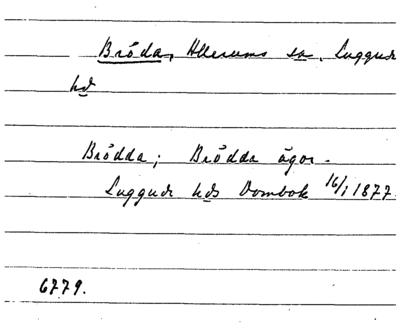 Bröda, Allerums sn, Luggude
hd
Brödda; Brödda ägor.
Luggude hds Dombok 16/1 1877.
6779.